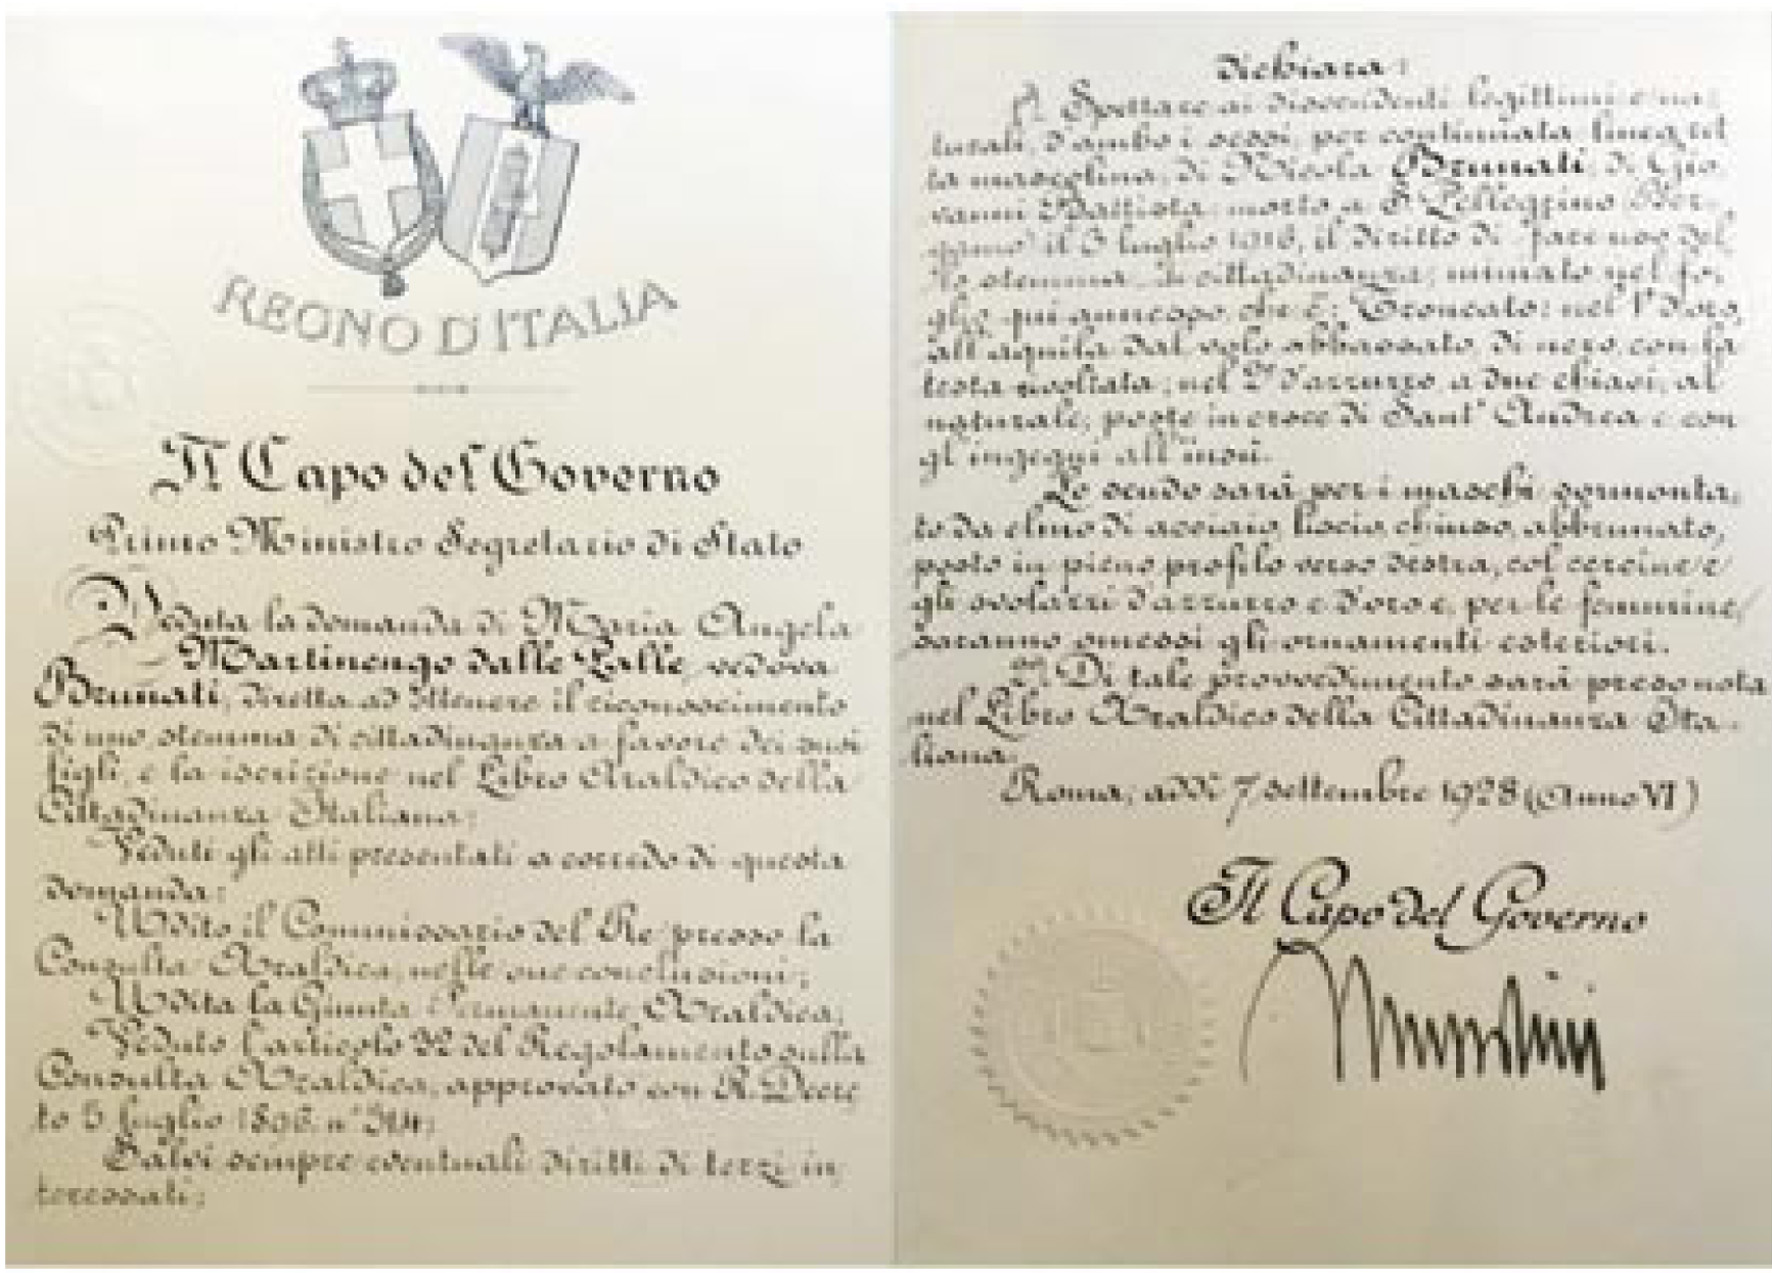 REGNO D'ITALIA
Il Capo del Governo
Primo Ministro Segretario di Stato
Veduta la domanda di Maria Angela
Martinengo dalle Palle, vedova
Brunati, diretta ad ottenere il riconoscimento
di uno stemma di cittadinanza a favore dei suoi
figli, e la iscrizione nel Libro Araldico della
Cittadinanza Italiana;
Veduti gli atti presentati a corredo di questa
domanda;
Udito il Commissario del Re presso la
Consulta Araldica, nelle sue conclusioni;
Udita la Giunta Permanente Araldica;
Veduto l'articolo del Regolamento sulla
Consulta Araldica, approvato con R. Decre
to 5 luglio 1896 n° 314;
Salvi sempre eventuali diritti di terzi in
teressati;
dichiara:
1° Spettare ai discendenti legittimi e na
turali, d'ambo i sessi, per continuata linea ret
ta mascolina, di Nicola Brunati, di Gio
vanni Battista morto a S. Pellegrino (Ber
gamo) il 3 luglio 1916, il diritto di fare uso del
lo stemma di cittadinanza, miniato nel fo
glio qui annesso, che è: Troncato: nel 1° d'oro,
all'aquila dal volo abbassato, di nero, con la
testa rivoltata; nel 2° d'azzurro, a due chiavi, al
naturale, poste in croce di Sant'Andrea e con
gl'ingegni all'insù.
Lo scudo sarà per i maschi sormonta
to da elmo di acciaio, liscio, chiuso, abbrunato,
posto in pieno profilo verso destra, col cercine e
gli svolazzi d'azzurro e d'oro e, per le femmine,
saranno omessi gli ornamenti esteriori.
2° Di tale provvedimento sarà preso nota
nel Libro Araldico della Cittadinanza Ita
liana.
Roma, addì 7 settembre 1928 (Anno VI)
Il Capo del Governo
Mussolini